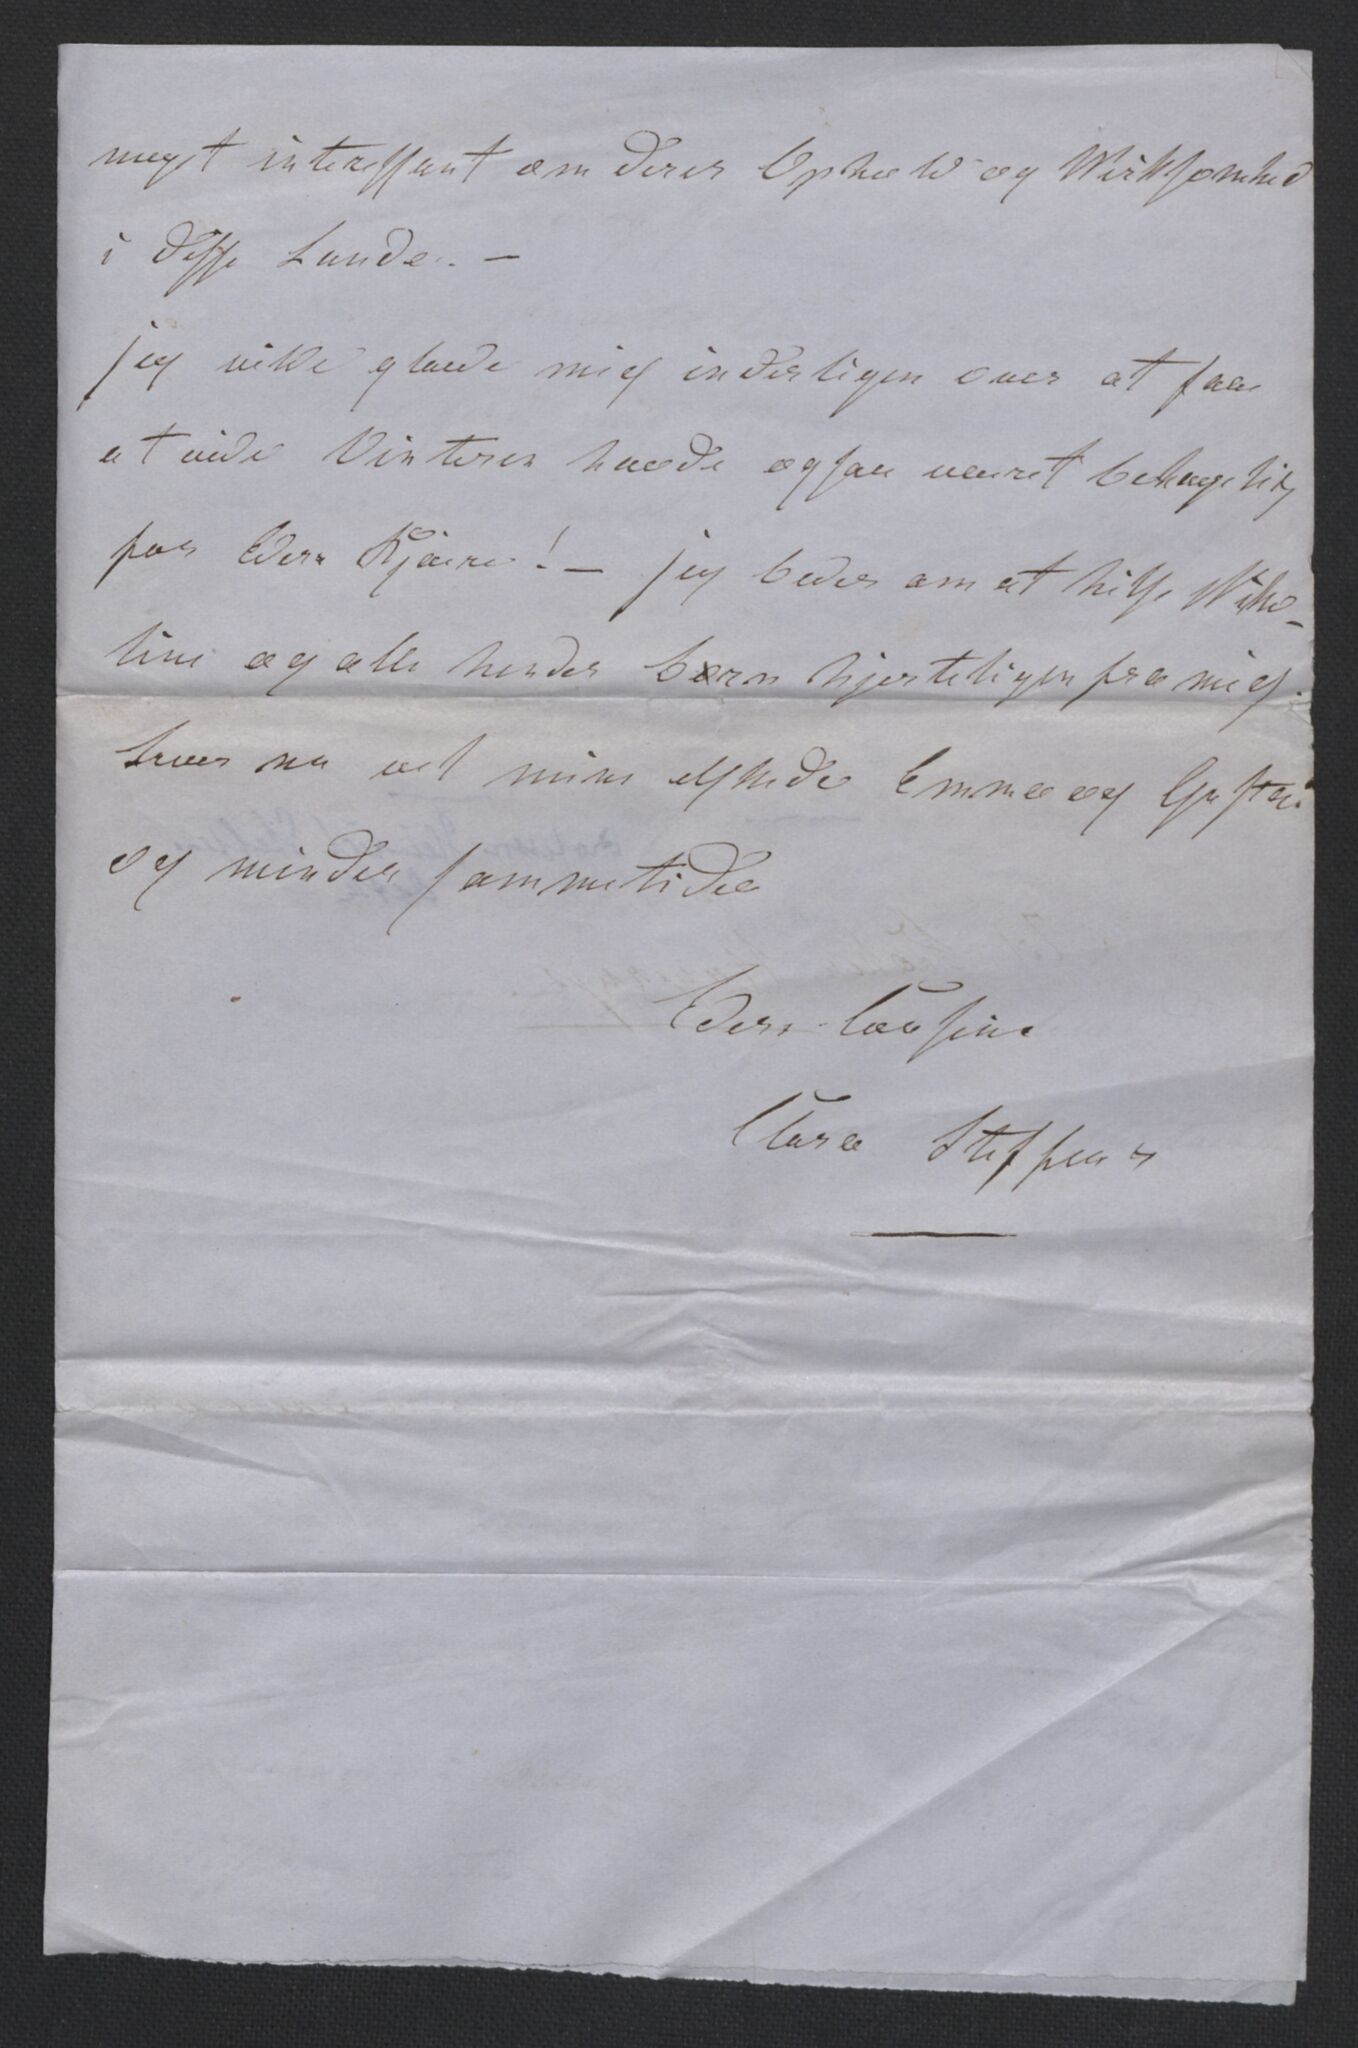 meget interessant om deres Ophold og Wirksomhed
i disse Lande. —
jeg vilde glæde mig inderligen over at faa
at vide Vinteren havde ogsaa været behagelig
for Eder Kjære! — jeg beder om at hilse Wilhel-
line og alle hendes børn hjerteligen fra mig.
Lever nu vel mine elskede Emma og Gustav
og mindes sammetider
Eders Cousine
Clara Steffens